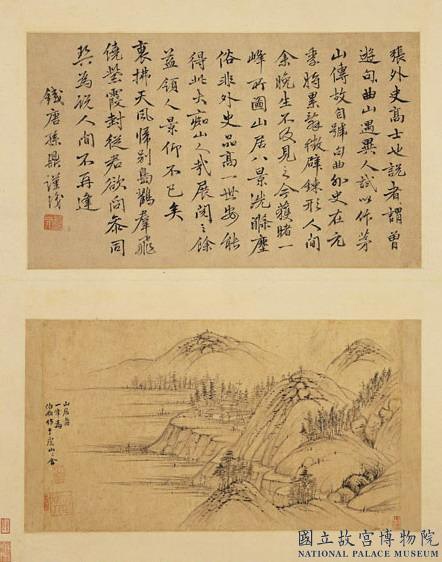 張外史高士也說者謂曾
遊句曲山遇異人試以作茅
山傳故自號句曲外史在元
季將累辟鍊形人間
余晚生不及見之今獲睹一
峰所圖山居八景洗滌塵
俗非外史品高一世安能
得此大癡山人哉展閱之餘
益領人景仰不已矣
拂天風歸別島鶴羣飛
繞霞封從君欲問參同
契為說人間不再逢
錢唐孫鼎謹識
山居
一峯為
伯雨作于山之舍
國立故宮博物院
NATIONAL PALACE MUSEUM